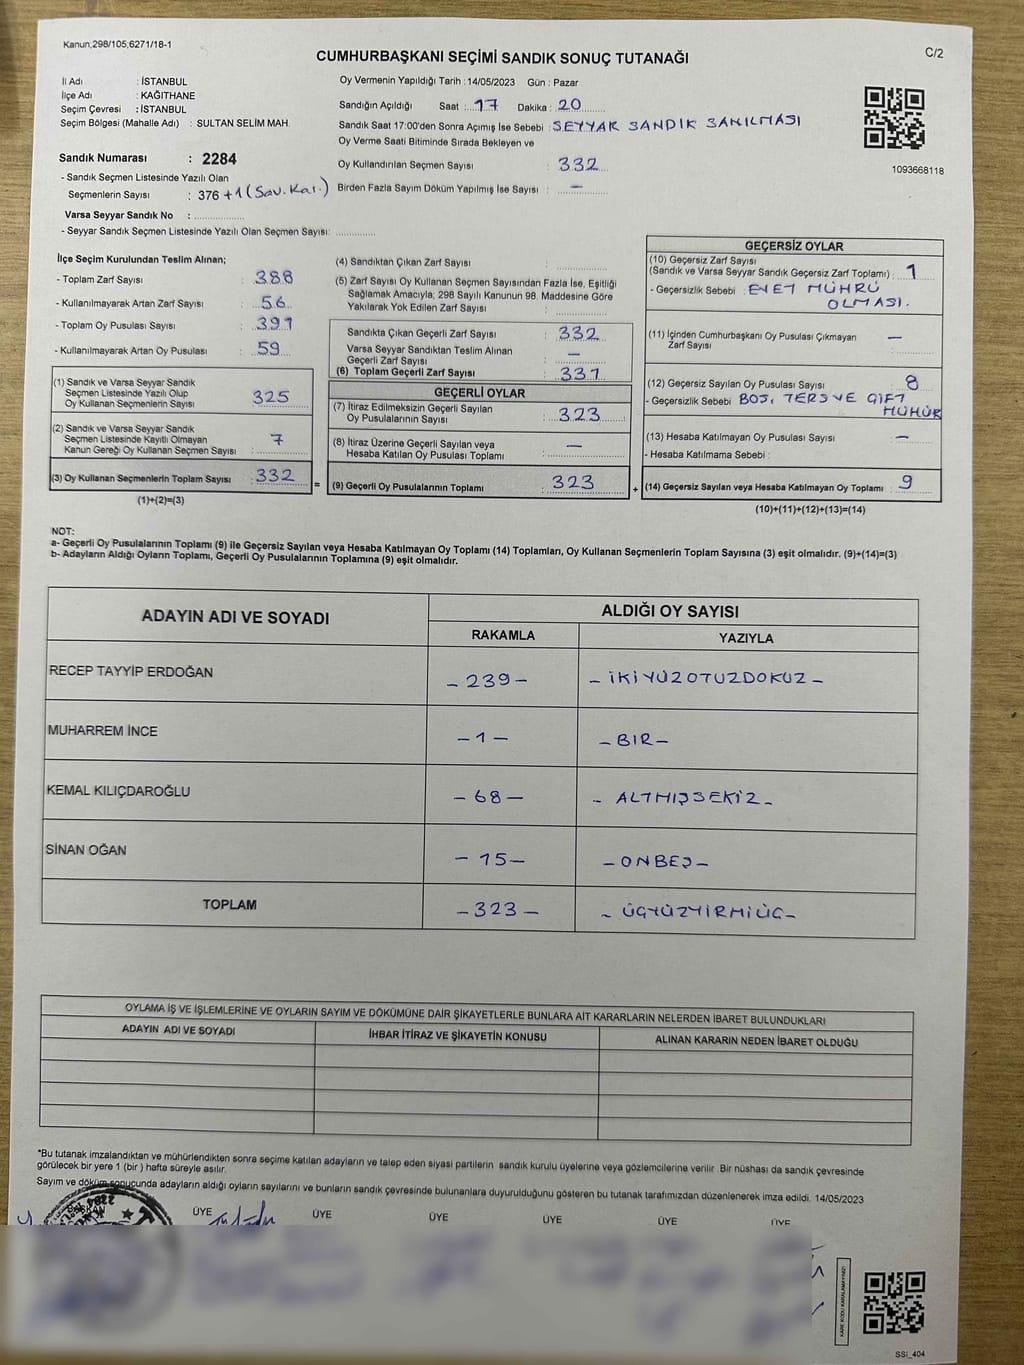 Kanun;298/105;6271/18-1
C/2
CUMHURBAŞKANI SEÇİMİ SANDIK SONUÇ TUTANAĞI
İl Adı : İSTANBUL
İlçe Adı : KAĞITHANE
Seçim Çevresi : İSTANBUL
Seçim Bölgesi (Mahalle Adı) : SULTAN SELİM MAH.
Sandık Numarası : 2284
- Sandık Seçmen Listesinde Yazılı Olan
Seçmenlerin Sayısı : 376 +1 (Sav. Kar.)
Varsa Seyyar Sandık No :
- Seyyar Sandık Seçmen Listesinde Yazılı Olan Seçmen Sayısı:
Oy Vermenin Yapıldığı Tarih : 14/05/2023 Gün : Pazar
Sandığın Açıldığı Saat : 17 Dakika : 20
Sandık Saat 17:00'den Sonra Açımış İse Sebebi : SEYYAR SANDIK SANILMASI
Oy Verme Saati Bitiminde Sırada Bekleyen ve
Oy Kullandırılan Seçmen Sayısı : 332
Birden Fazla Sayım Döküm Yapılmış İse Sayısı : —
1093668118
İlçe Seçim Kurulundan Teslim Alınan;
- Toplam Zarf Sayısı : 388
- Kullanılmayarak Artan Zarf Sayısı : 56
- Toplam Oy Pusulası Sayısı : 391
- Kullanılmayarak Artan Oy Pusulası : 59
(1) Sandık ve Varsa Seyyar Sandık
Seçmen Listesinde Yazılı Olup
Oy Kullanan Seçmenlerin Sayısı : 325
(2) Sandık ve Varsa Seyyar Sandık
Seçmen Listesinde Kayıtlı Olmayan
Kanun Gereği Oy Kullanan Seçmen Sayısı : 7
(3) Oy Kullanan Seçmenlerin Toplam Sayısı : 332
(1)+(2)=(3)
(4) Sandıktan Çıkan Zarf Sayısı :
(5) Zarf Sayısı Oy Kullanan Seçmen Sayısından Fazla İse, Eşitliği
Sağlamak Amacıyla, 298 Sayılı Kanunun 98. Maddesine Göre
Yakılarak Yok Edilen Zarf Sayısı :
Sandıkta Çıkan Geçerli Zarf Sayısı : 332
Varsa Seyyar Sandıktan Teslim Alınan
Geçerli Zarf Sayısı : —
(6) Toplam Geçerli Zarf Sayısı : 331
GEÇERLİ OYLAR
(7) İtiraz Edilmeksizin Geçerli Sayılan
Oy Pusulasının Sayısı : 323
(8) İtiraz Üzerine Geçerli Sayılan veya
Hesaba Katılan Oy Pusulası Toplamı : —
= (9) Geçerli Oy Pusulalarının Toplamı : 323
GEÇERSİZ OYLAR
(10) Geçersiz Zarf Sayısı
(Sandık ve Varsa Seyyar Sandık Geçersiz Zarf Toplamı) : 1
- Geçersizlik Sebebi : EVET MÜHRÜ
OLMASI.
(11) İçinden Cumhurbaşkanı Oy Pusulası Çıkmayan
Zarf Sayısı : —
(12) Geçersiz Sayılan Oy Pusulası Sayısı : 8
- Geçersizlik Sebebi BOŞ, TERS VE ÇİFT
MÜHÜR
(13) Hesaba Katılmayan Oy Pusulası Sayısı : —
- Hesaba Katılmama Sebebi :
+ (14) Geçersiz Sayılan veya Hesaba Katılmayan Oy Toplamı : 9
(10)+(11)+(12)+(13)=(14)
NOT:
a- Geçerli Oy Pusulalarının Toplamı (9) ile Geçersiz Sayılan veya Hesaba Katılmayan Oy Toplamı (14) Toplamları, Oy Kullanan Seçmenlerin Toplam Sayısına (3) eşit olmalıdır. (9)+(14)=(3)
b- Adayların Aldığı Oyların Toplamı, Geçerli Oy Pusulalarının Toplamına (9) eşit olmalıdır.
ADAYIN ADI VE SOYADI
ALDIĞI OY SAYISI
RAKAMLA YAZIYLA
RECEP TAYYİP ERDOĞAN – 239 – – İKİYÜZOTUZDOKUZ –
MUHARREM İNCE – 1 – – BİR –
KEMAL KILIÇDAROĞLU – 68 – – ALTMIŞSEKİZ –
SİNAN OĞAN – 15 – – ONBEŞ –
TOPLAM – 323 – – ÜÇYÜZYİRMİÜÇ –
OYLAMA İŞ VE İŞLEMLERİNE VE OYLARIN SAYIM VE DÖKÜMÜNE DAİR ŞİKAYETLERLE BUNLARA AİT KARARLARIN NELERDEN İBARET BULUNDUKLARI
ADAYIN ADI VE SOYADI İHBAR İTİRAZ VE ŞİKAYETİN KONUSU ALINAN KARARIN NEDEN İBARET OLDUĞU
*Bu tutanak imzalandıktan ve mühürlendikten sonra seçime katılan adayların ve talep eden siyasi partilerin sandık kurulu üyelerine veya gözlemcilerine verilir. Bir nüshası da sandık çevresinde
görülecek bir yere 1 (bir ) hafta süreyle asılır.
Sayım ve döküm sonucunda adayların aldığı oyların sayılarını ve bunların sandık çevresinde bulunanlara duyurulduğunu gösteren bu tutanak tarafımızdan düzenlenerek imza edildi. 14/05/2023
BAŞKAN ÜYE ÜYE ÜYE ÜYE ÜYE ÜYE
2284
KARE KODU KARALAMAYINIZ!
SSI_404